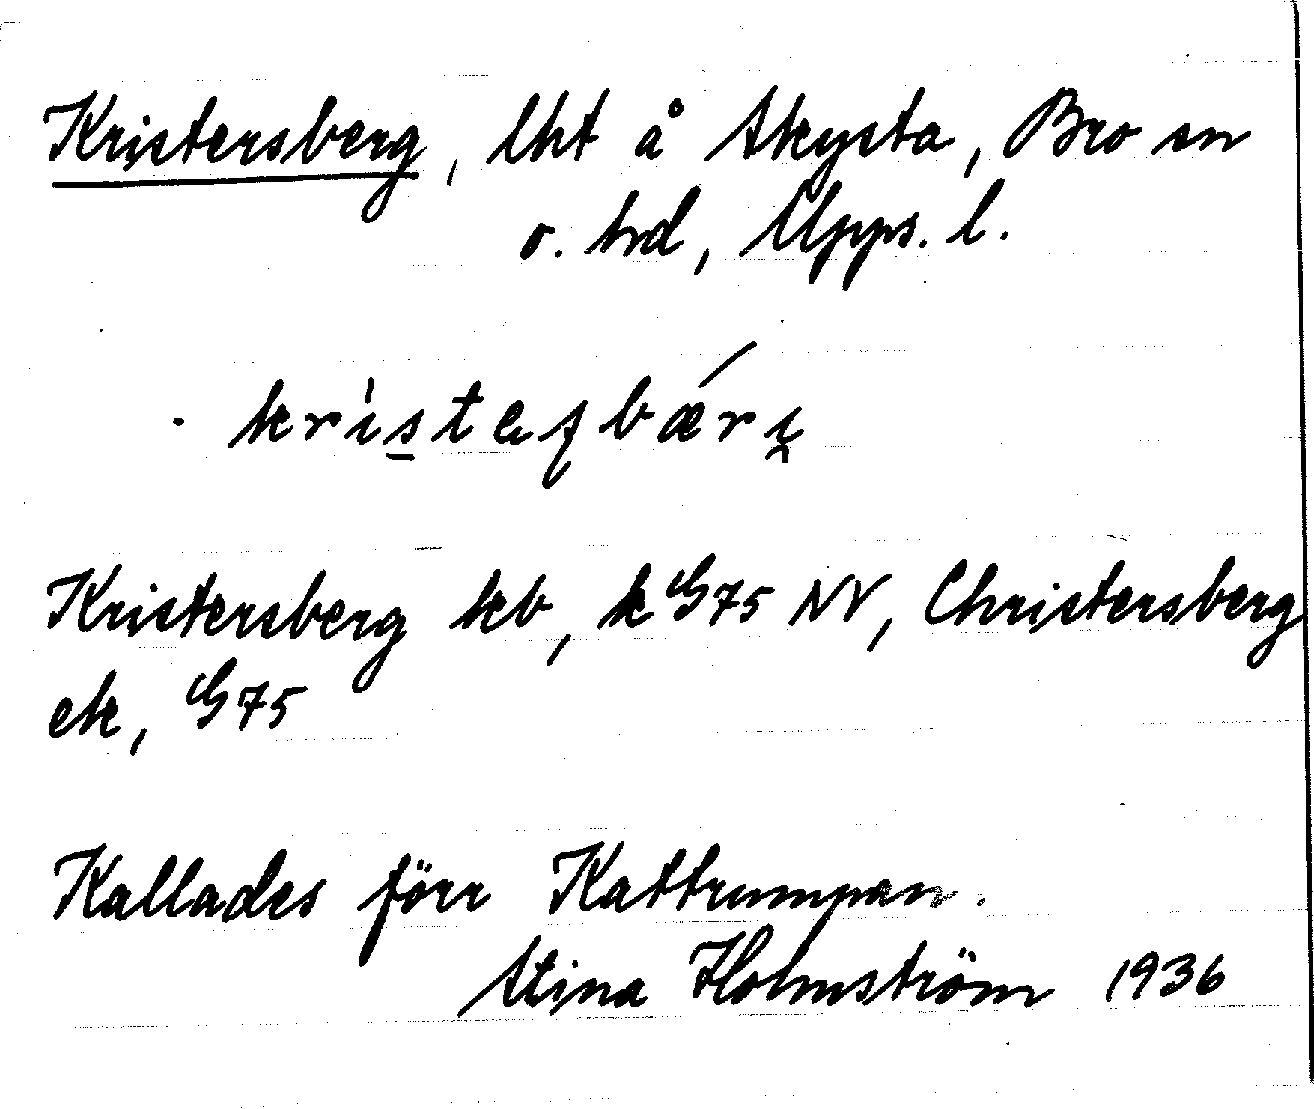 Kristersberg, lht å Skysta, Bro sn
o. hd, Upps. l.
krìsteʂbǽrį
Kristersberg kb, k G75 NV, Christersberg
ek, G75
Kallades förr Kattrumpan.
Stina Holmström 1936